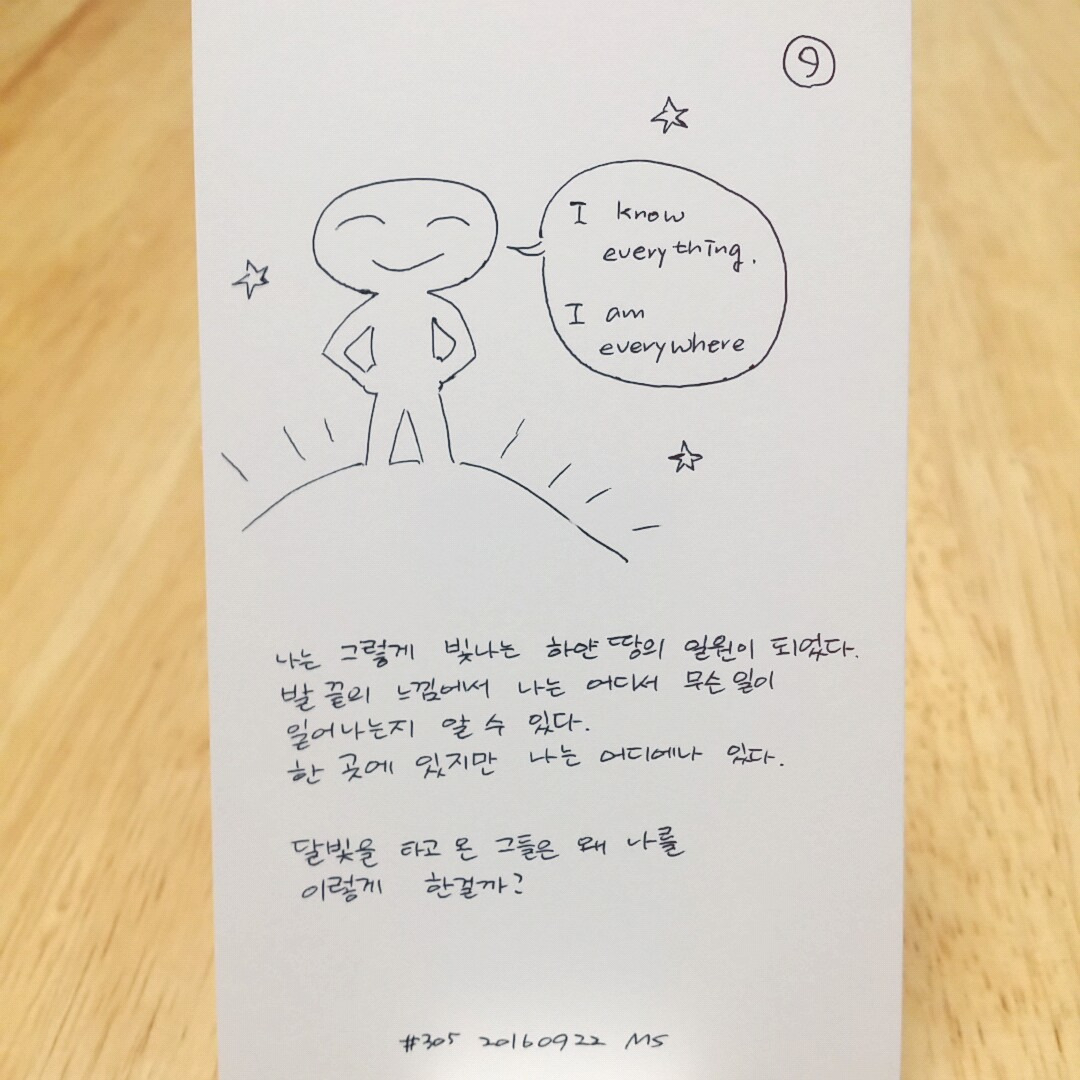 9
I know
everything.
I am
everywhere
나는 그렇게 빛나는 하얀 땅의 일원이 되었다.
발 끝의 느낌에서 나는 어디서 무슨 일이
일어나는지 알 수 있다.
한 곳에 있지만 나는 어디에나 있다.
달빛을 타고 온 그들은 왜 나를
이렇게 한걸까?
#305 20160922 MS